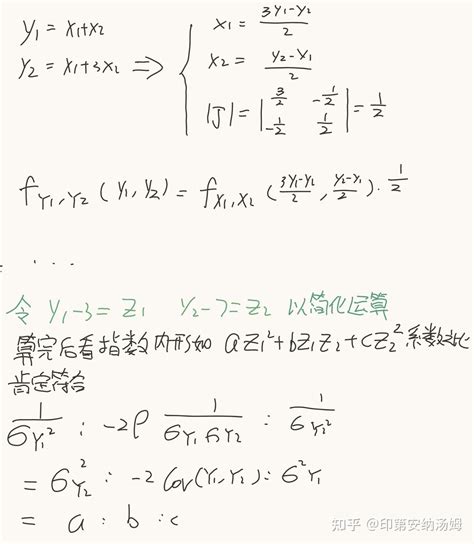 Y₁ = X₁+X₂
Y₂ = X₁+3X₂ ⇒ {
X₁ = (3Y₁-Y₂)/2
X₂ = (Y₂-Y₁)/2
|J| = |3/2 -1/2; -1/2 1/2| = 1/2
f_{Y₁,Y₂}(Y₁,Y₂) = f_{X₁,X₂}((3Y₁-Y₂)/2, (Y₂-Y₁)/2)·1/2
. . .
令 Y₁-3=Z₁ Y₂-7=Z₂ 以简化运算
算完后看指数内形如 aZ₁²+bZ₁Z₂+cZ₂² 系数对比
肯定符合
1/σ_{Y₁}² : -2ρ 1/(σ_{Y₁}σ_{Y₂}) : 1/σ_{Y₂}²
= σ_{Y₂}² : -2Cov(Y₁,Y₂) : σ²_{Y₁}
= a : b : c
知乎 @印第安纳汤姆